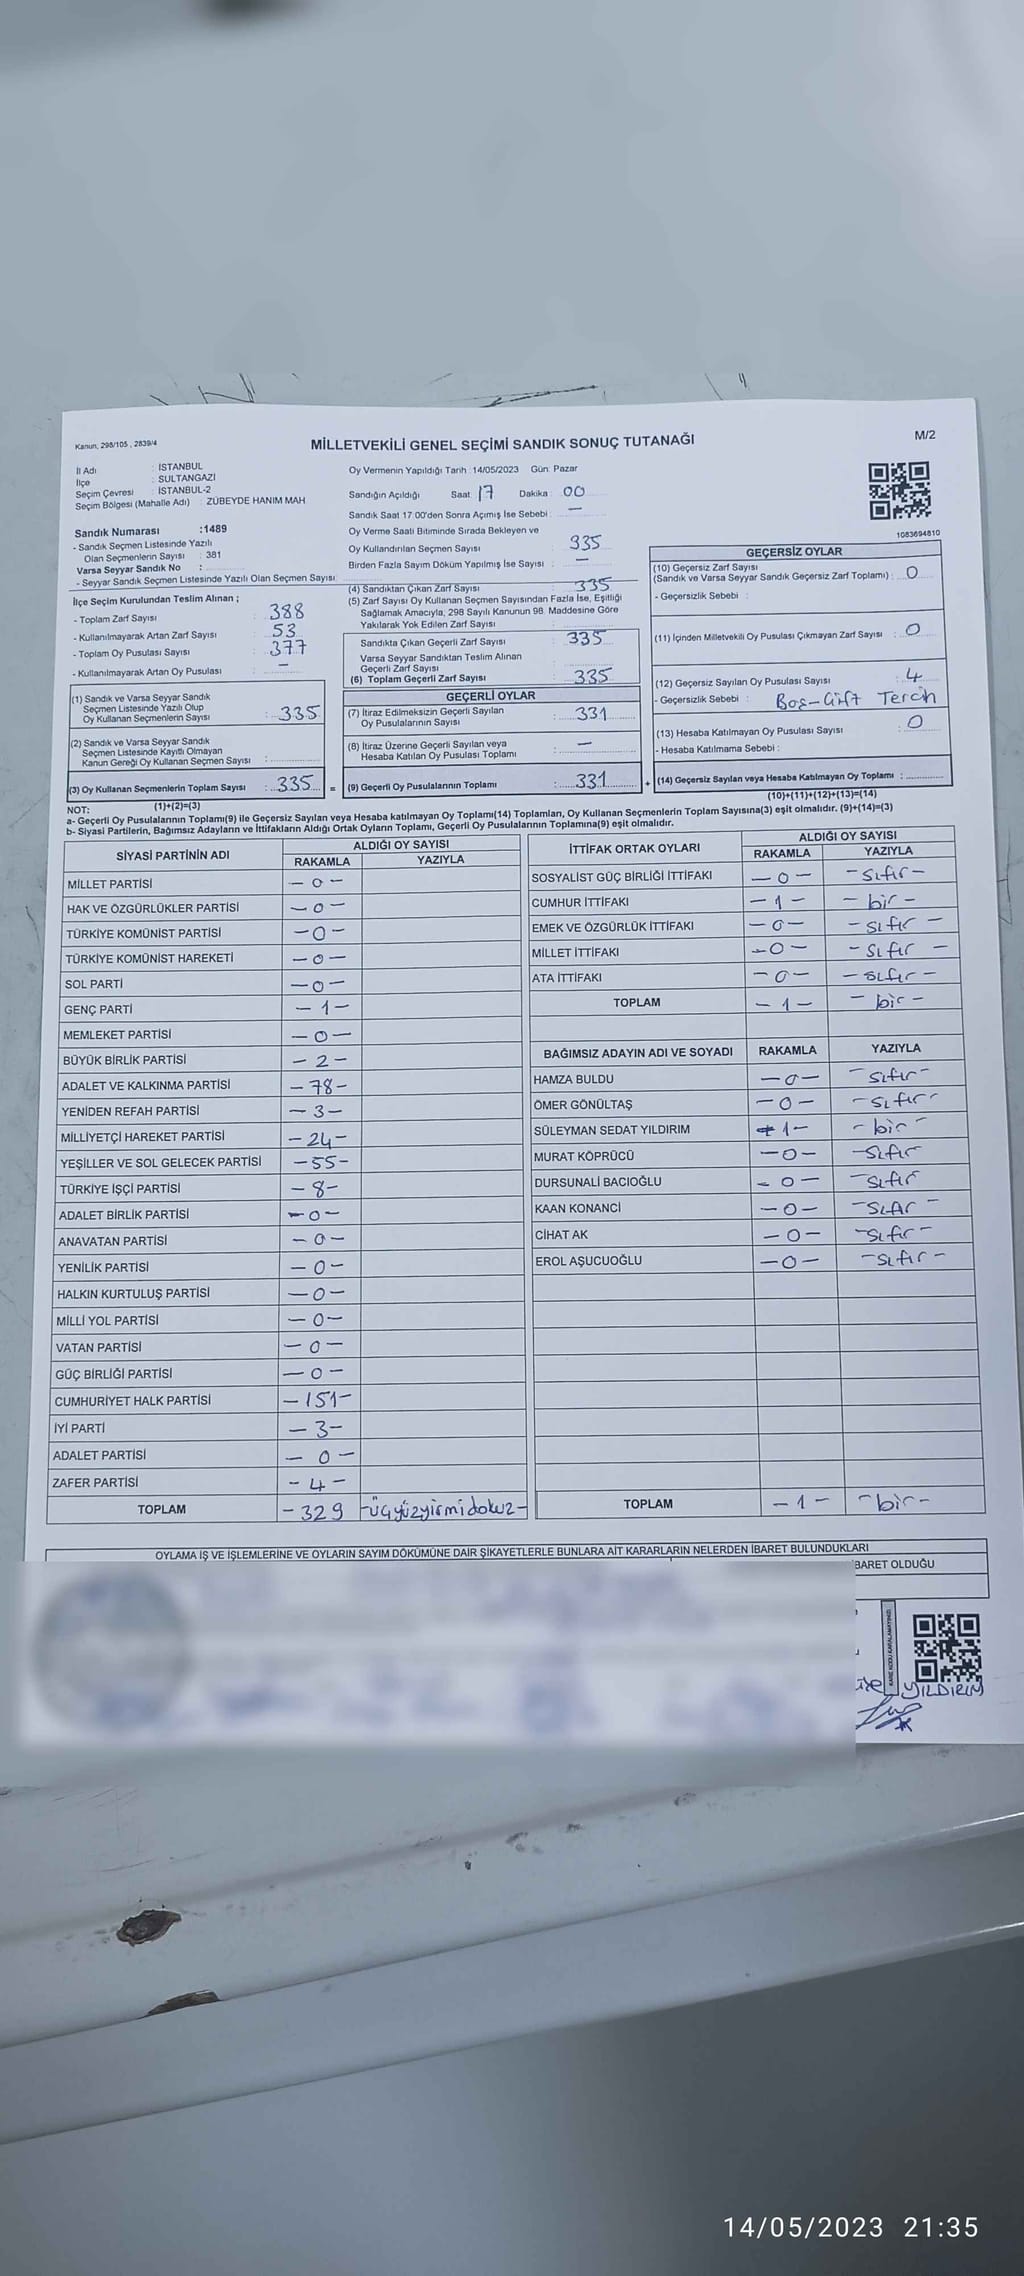 Kanun, 298/105 , 2839/4
MİLLETVEKİLİ GENEL SEÇİMİ SANDIK SONUÇ TUTANAĞI
M/2
İl Adı : İSTANBUL
İlçe : SULTANGAZİ
Seçim Çevresi : İSTANBUL-2
Seçim Bölgesi (Mahalle Adı) : ZÜBEYDE HANIM MAH
Sandık Numarası :1489
- Sandık Seçmen Listesinde Yazılı
Olan Seçmenlerin Sayısı : 381
Varsa Seyyar Sandık No :
- Seyyar Sandık Seçmen Listesinde Yazılı Olan Seçmen Sayısı:
İlçe Seçim Kurulundan Teslim Alınan ;
- Toplam Zarf Sayısı : 388
- Kullanılmayarak Artan Zarf Sayısı : 53
- Toplam Oy Pusulası Sayısı : 377
- Kullanılmayarak Artan Oy Pusulası : —
(1) Sandık ve Varsa Seyyar Sandık
Seçmen Listesinde Yazılı Olup
Oy Kullanan Seçmenlerin Sayısı : 335
(2) Sandık ve Varsa Seyyar Sandık
Seçmen Listesinde Kayıtlı Olmayan
Kanun Gereği Oy Kullanan Seçmen Sayısı :
(3) Oy Kullanan Seçmenlerin Toplam Sayısı : 335 =
(1)+(2)=(3)
Oy Vermenin Yapıldığı Tarih :14/05/2023 Gün: Pazar
Sandığın Açıldığı Saat: 17 Dakika : 00
Sandık Saat 17:00'den Sonra Açımış İse Sebebi : —
Oy Verme Saati Bitiminde Sırada Bekleyen ve
Oy Kullandırılan Seçmen Sayısı : 335
Birden Fazla Sayım Döküm Yapılmış İse Sayısı : —
(4) Sandıktan Çıkan Zarf Sayısı : 335
(5) Zarf Sayısı Oy Kullanan Seçmen Sayısından Fazla İse, Eşitliği
Sağlamak Amacıyla; 298 Sayılı Kanunun 98. Maddesine Göre
Yakılarak Yok Edilen Zarf Sayısı :
Sandıkta Çıkan Geçerli Zarf Sayısı : 335
Varsa Seyyar Sandıktan Teslim Alınan
Geçerli Zarf Sayısı :
(6) Toplam Geçerli Zarf Sayısı : 335
GEÇERLİ OYLAR
(7) İtiraz Edilmeksizin Geçerli Sayılan
Oy Pusulalarının Sayısı : 331
(8) İtiraz Üzerine Geçerli Sayılan veya
Hesaba Katılan Oy Pusulası Toplamı : —
(9) Geçerli Oy Pusulalarının Toplamı : 331 +
1083694810
GEÇERSİZ OYLAR
(10) Geçersiz Zarf Sayısı
(Sandık ve Varsa Seyyar Sandık Geçersiz Zarf Toplamı) : 0
- Geçersizlik Sebebi :
(11) İçinden Milletvekili Oy Pusulası Çıkmayan Zarf Sayısı : 0
(12) Geçersiz Sayılan Oy Pusulası Sayısı : 4
- Geçersizlik Sebebi : Boş-Çift Tercih
(13) Hesaba Katılmayan Oy Pusulası Sayısı : 0
- Hesaba Katılmama Sebebi :
(14) Geçersiz Sayılan veya Hesaba Katılmayan Oy Toplamı :
(10)+(11)+(12)+(13)=(14)
NOT:
a- Geçerli Oy Pusulalarının Toplamı(9) ile Geçersiz Sayılan veya Hesaba katılmayan Oy Toplamı(14) Toplamları, Oy Kullanan Seçmenlerin Toplam Sayısına(3) eşit olmalıdır. (9)+(14)=(3)
b- Siyasi Partilerin, Bağımsız Adayların ve İttifakların Aldığı Ortak Oyların Toplamı, Geçerli Oy Pusulalarının Toplamına(9) eşit olmalıdır.
SİYASİ PARTİNİN ADI ALDIĞI OY SAYISI
RAKAMLA YAZIYLA
MİLLET PARTİSİ — 0 —
HAK VE ÖZGÜRLÜKLER PARTİSİ — 0 —
TÜRKİYE KOMÜNİST PARTİSİ — 0 —
TÜRKİYE KOMÜNİST HAREKETİ — 0 —
SOL PARTİ — 0 —
GENÇ PARTİ — 1 —
MEMLEKET PARTİSİ — 0 —
BÜYÜK BİRLİK PARTİSİ — 2 —
ADALET VE KALKINMA PARTİSİ — 78 —
YENİDEN REFAH PARTİSİ — 3 —
MİLLİYETÇİ HAREKET PARTİSİ — 24 —
YEŞİLLER VE SOL GELECEK PARTİSİ — 55 —
TÜRKİYE İŞÇİ PARTİSİ — 8 —
ADALET BİRLİK PARTİSİ — 0 —
ANAVATAN PARTİSİ — 0 —
YENİLİK PARTİSİ — 0 —
HALKIN KURTULUŞ PARTİSİ — 0 —
MİLLİ YOL PARTİSİ — 0 —
VATAN PARTİSİ — 0 —
GÜÇ BİRLİĞİ PARTİSİ — 0 —
CUMHURİYET HALK PARTİSİ — 151 —
İYİ PARTİ — 3 —
ADALET PARTİSİ — 0 —
ZAFER PARTİSİ — 4 —
TOPLAM — 329 — üçyüzyirmidokuz —
İTTİFAK ORTAK OYLARI ALDIĞI OY SAYISI
RAKAMLA YAZIYLA
SOSYALİST GÜÇ BİRLİĞİ İTTİFAKI — 0 — — sıfır —
CUMHUR İTTİFAKI — 1 — — bir —
EMEK VE ÖZGÜRLÜK İTTİFAKI — 0 — — sıfır —
MİLLET İTTİFAKI — 0 — — sıfır —
ATA İTTİFAKI — 0 — — sıfır —
TOPLAM — 1 — — bir —
BAĞIMSIZ ADAYIN ADI VE SOYADI RAKAMLA YAZIYLA
HAMZA BULDU — 0 — — sıfır —
ÖMER GÖNÜLTAŞ — 0 — — sıfır —
SÜLEYMAN SEDAT YILDIRIM — 1 — — bir —
MURAT KÖPRÜCÜ — 0 — — sıfır
DURSUNALİ BACIOĞLU — 0 — — sıfır
KAAN KONANCİ — 0 — — sıfır —
CİHAT AK — 0 — — sıfır —
EROL AŞUCUOĞLU — 0 — — sıfır —
TOPLAM — 1 — — bir —
OYLAMA İŞ VE İŞLEMLERİNE VE OYLARIN SAYIM DÖKÜMÜNE DAİR ŞİKAYETLERLE BUNLARA AİT KARARLARIN NELERDEN İBARET BULUNDUKLARI
BARET OLDUĞU
YILDIRIM
14/05/2023 21:35